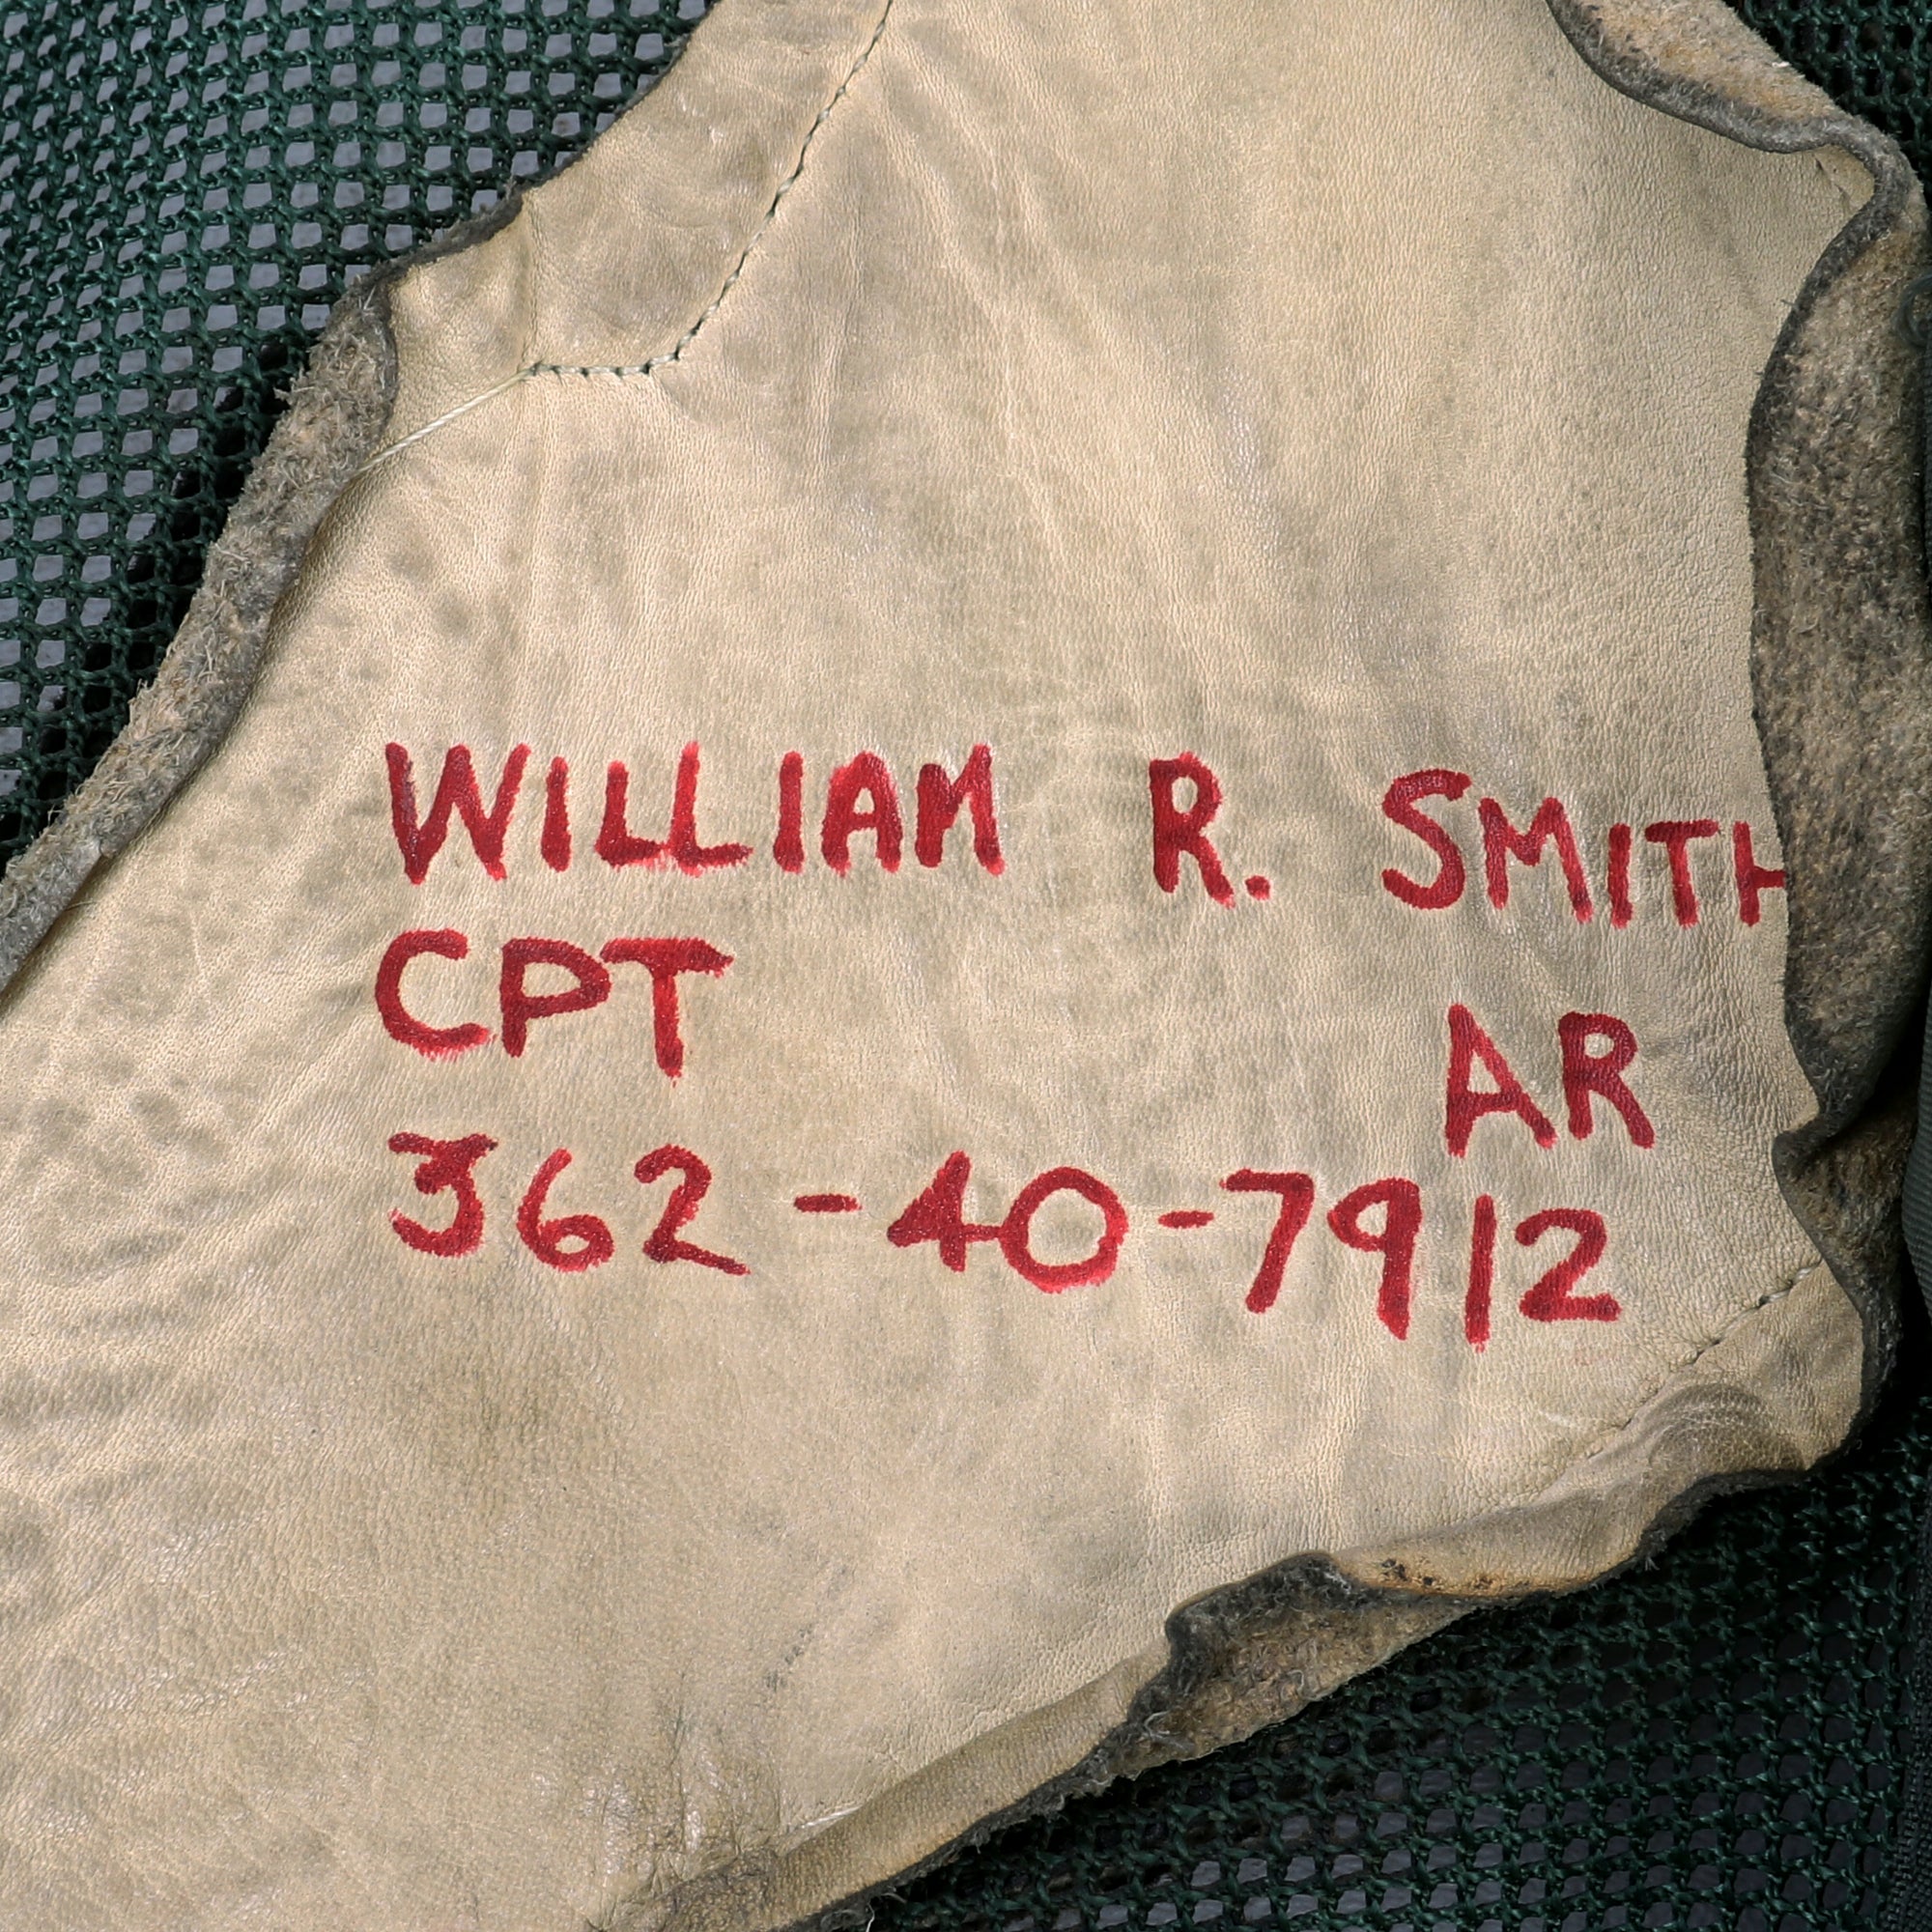 WILLIAM R. SMITH
CPT AR
362-40-7912